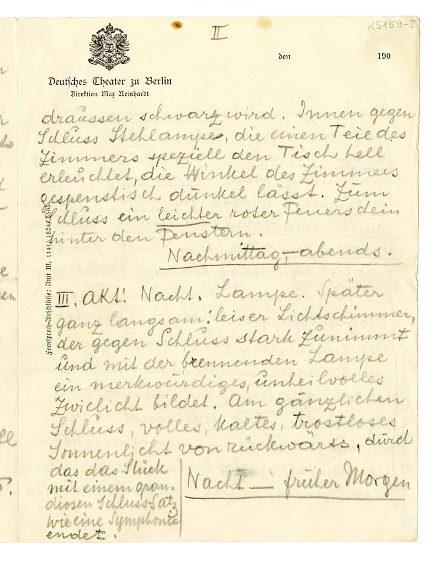 II
K5159-2
den 190
Deutsches Theater zu Berlin
Direktion Max Reinhardt
draussen schwarz wird. Innen gegen
Schluss Stehlampe, die einen Teie des
Zimmers speziell den Tisch hell
erleuchtet, die Winkel des Zimmers
gespenstisch dunkel lässt. Zum
Schluss ein leichter roter Feuerschein
hinter den Fenstern.
Nachmittag, - abends.
III. Akt: Nacht. Lampe. Später
ganz langsam: leiser Lichtschimmer,
der gegen Schluss stark zunimmt
und mit der brennenden Lampe
ein merkwürdiges, unheilvolles
Zwielicht bildet. Am gänzlichen
Schluss, volles, kaltes, trostloses
Sonnenlicht von rückwärts, durch
das das Stück
mit einem gran-
diosen Schluss-Satz
wie eine Symphonie
endet.
Nacht - früher Morgen
Fernsprech-Anschlüsse: Amt III,